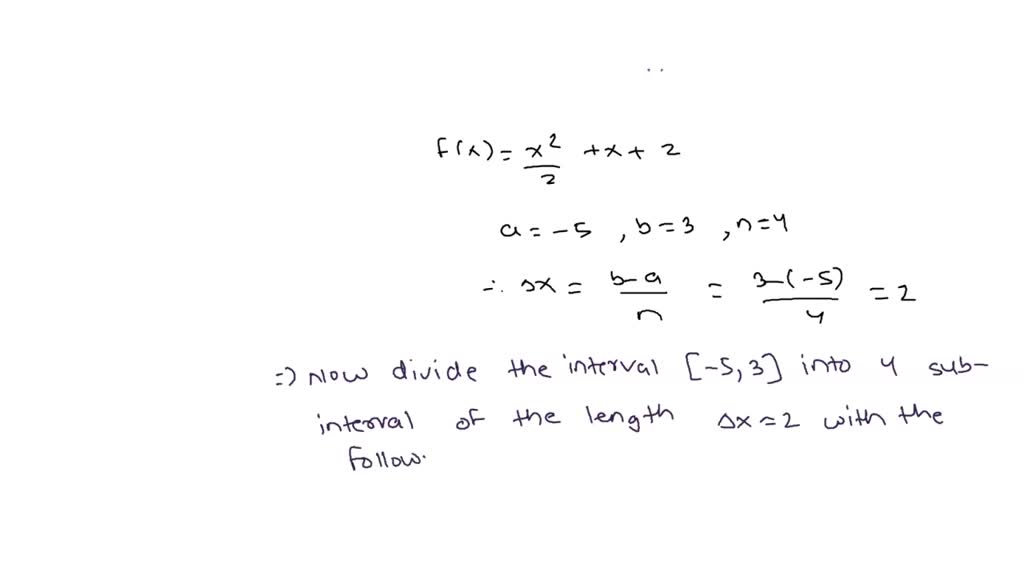 f(x) = x²/2 + x + 2
a = -5 , b = 3 , n = 4
∴ Δx = b-a/n = 3-(-5)/4 = 2
=) Now divide the interval [-5, 3] into 4 sub-
interval of the length Δx = 2 with the
follow.